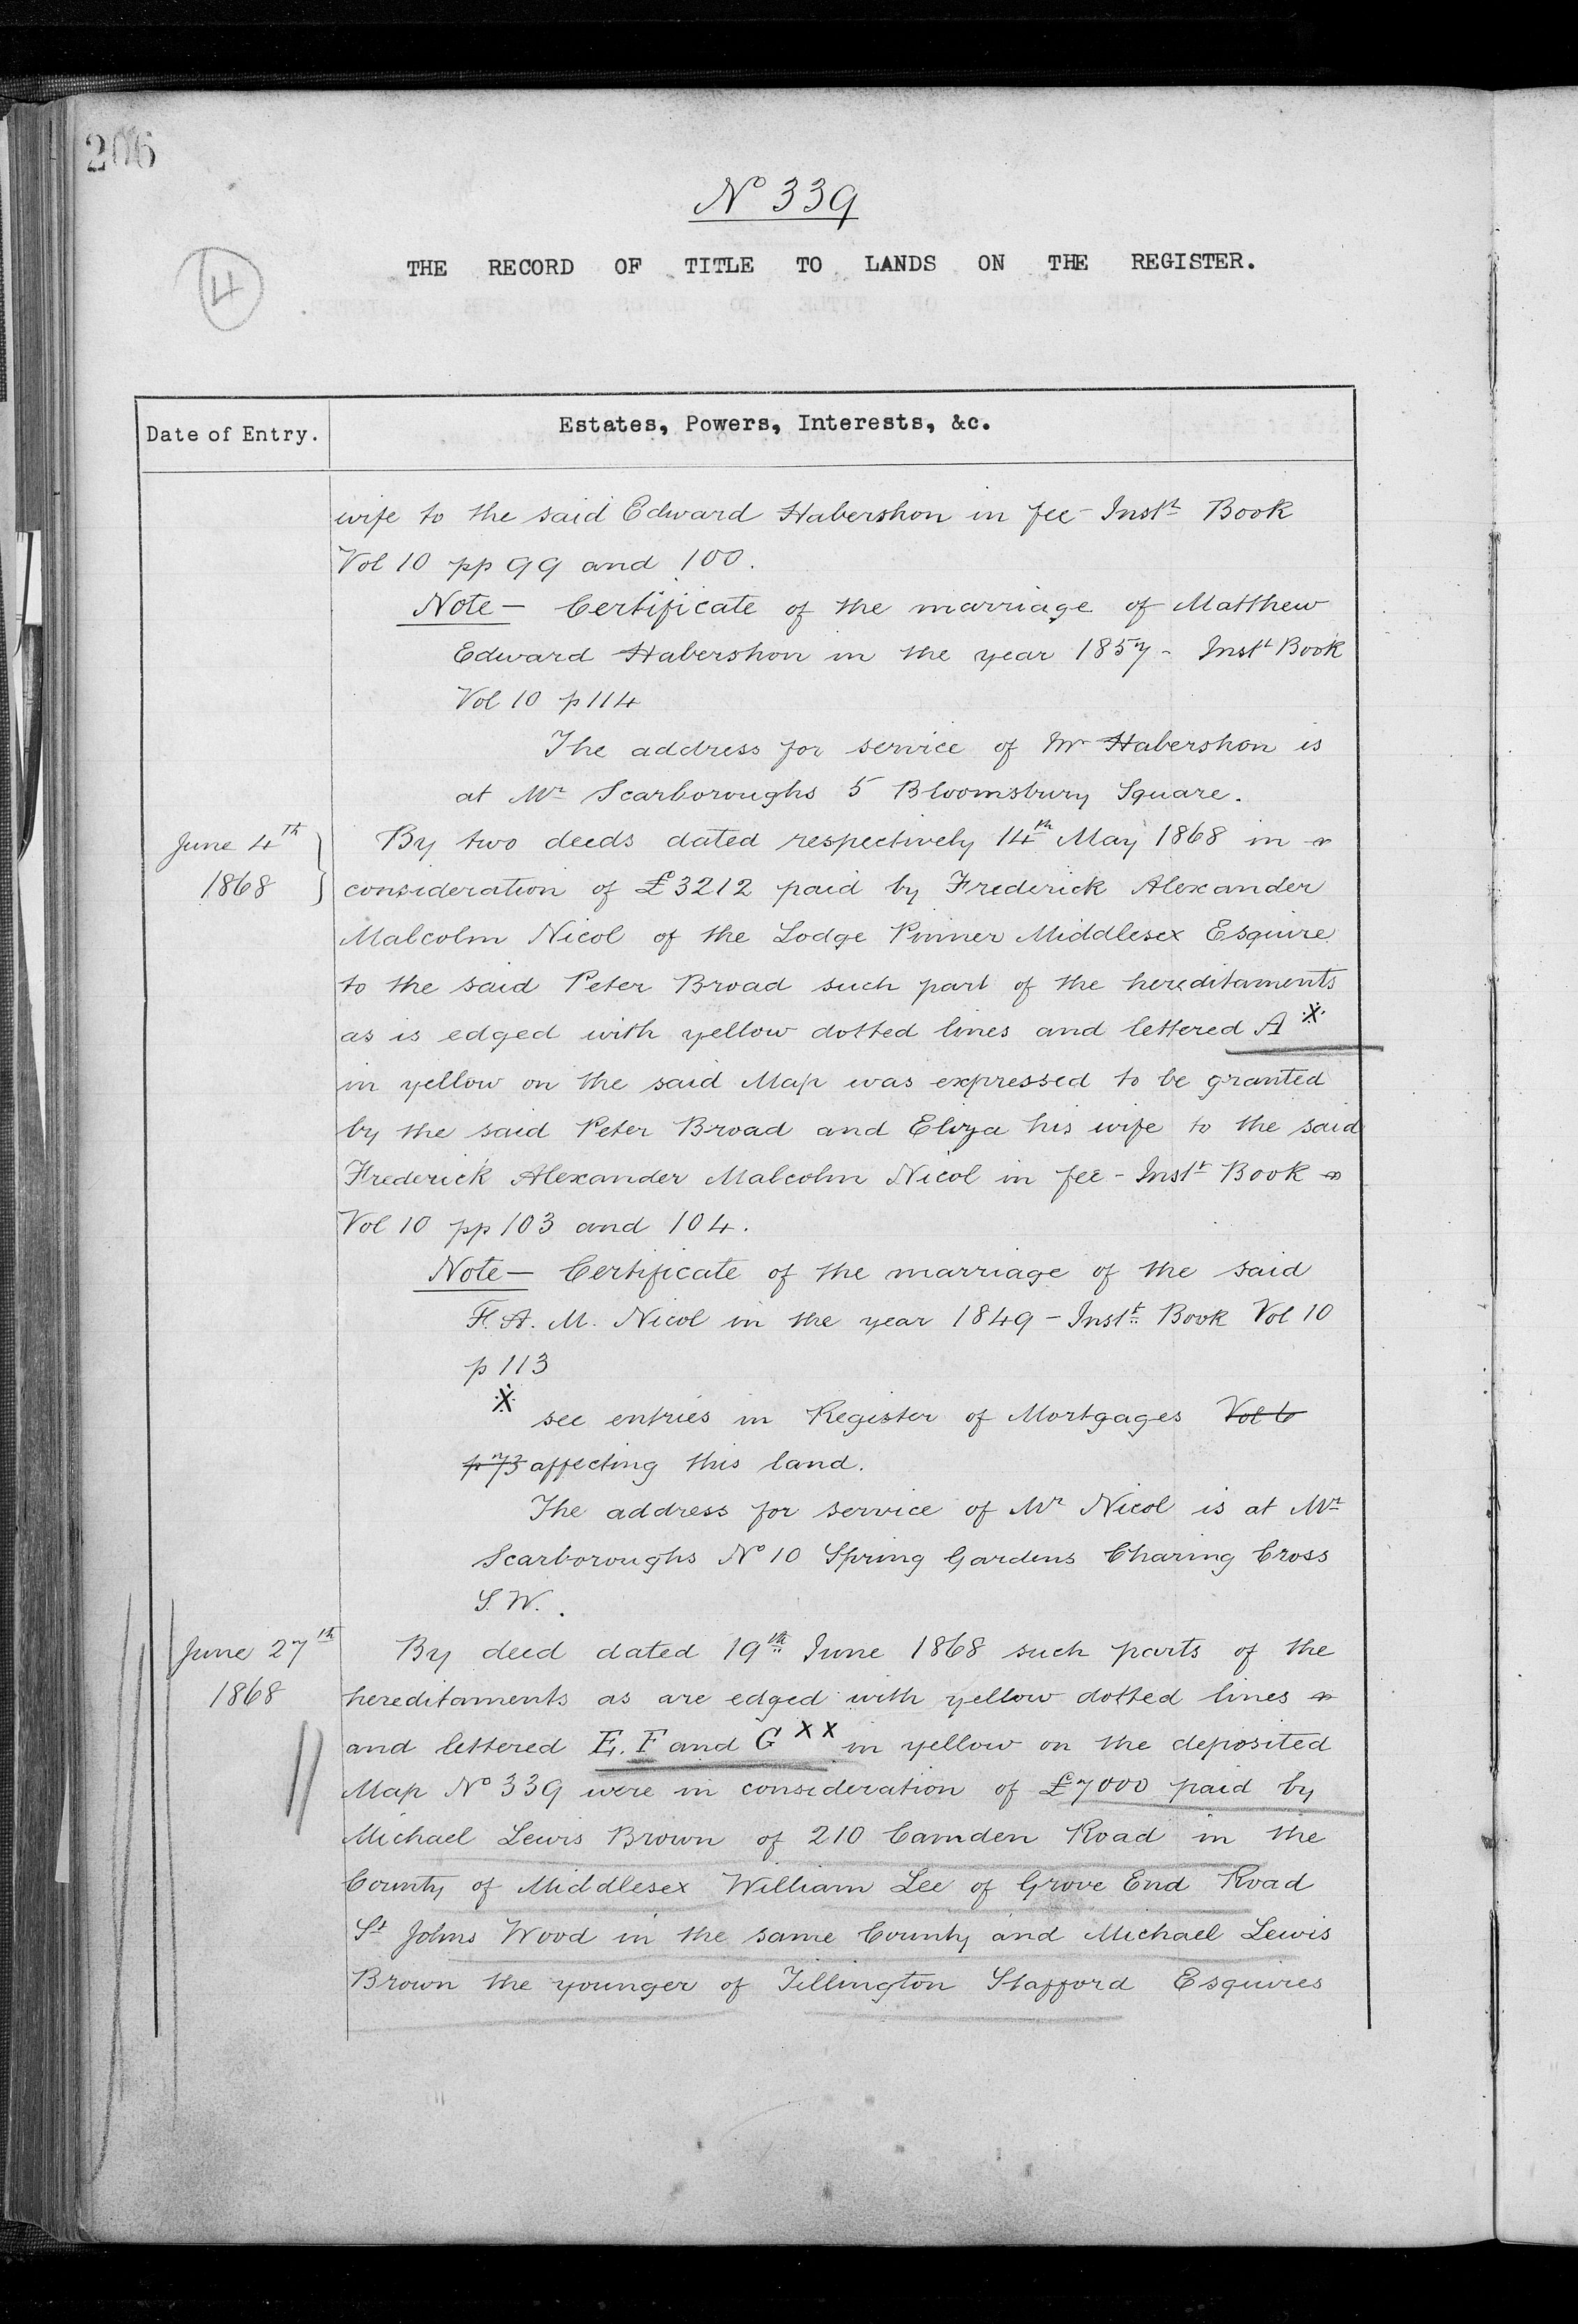 206
Nº 339
4
THE RECORD OF TITLE TO LANDS ON THE REGISTER.
Date of Entry.
Estates, Powers, Interests, &c.
wife to the said Edward Habershon in fee - Instt Book
Vol 10 pp 99 and 100.
Note - Certificate of the marriage of Matthew
Edward Habershon in the year 1857 - Instt Book
Vol 10 p 114
The address for service of Mr Habershon is
at Mr Scarboroughs 5 Bloomsbury Square.
June 4th
1868
By two deeds dated respectively 14th May 1868 in
consideration of £3212 paid by Frederick Alexander
Malcolm Nicol of the Lodge Pinner Middlesex Esquire
to the said Peter Broad such part of the hereditaments
as is edged with yellow dotted lines and lettered A ※
in yellow on the said Map was expressed to be granted
by the said Peter Broad and Eliza his wife to the said
Frederick Alexander Malcolm Nicol in fee - Instt Book
Vol 10 pp 103 and 104.
Note - Certificate of the marriage of the said
F. A. M. Nicol in the year 1849 - Instt Book Vol 10
p 113
※ see entries in Register of Mortgages Vol 6
p 73 affecting this land.
The address for service of Mr Nicol is at Mr
Scarboroughs Nº 10 Spring Gardens Charing Cross
S.W.
June 27th
1868
By deed dated 19th June 1868 such parts of the
hereditaments as are edged with yellow dotted lines
and lettered E. F and G X X in yellow on the deposited
Map Nº 339 were in consideration of £7000 paid by
Michael Lewis Brown of 210 Camden Road in the
County of Middlesex William Lee of Grove End Road
St Johns Wood in the same County and Michael Lewis
Brown the younger of Tillington Stafford Esquires